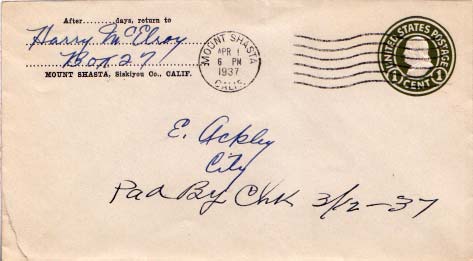 After............days, return to
Harry McElroy
Box 27
MOUNT SHASTA, Siskiyou Co., CALIF.
MOUNT SHASTA
APR 1
6 PM
1937
CALIF.
UNITED STATES POSTAGE
1 CENT 1
E. Ackley
City
Pad By Chk 3/12-37